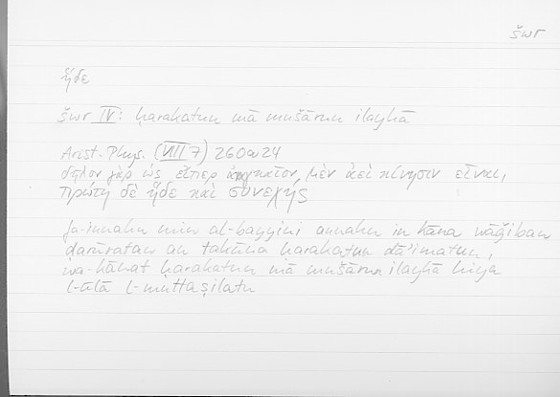 šwr
ἥδε
šwr IV: ḥarakatun mā mušārun ilayhā
Arist. Phys. (VIII 7) 260a24
δῆλον γὰρ ὡς εἴπερ ἀναγκαῖον μὲν ἀεὶ κίνησιν εἶναι,
πρώτη δὲ ἥδε καὶ συνεχής
fa-innahu mina al-bayyini annahu in kāna wāǧiban
ḍarūratan an takūna ḥarakatun dā'imatun,
wa-kānat ḥarakatun mā mušārun ilayhā hiya
l-ūlā l-muttaṣilatu